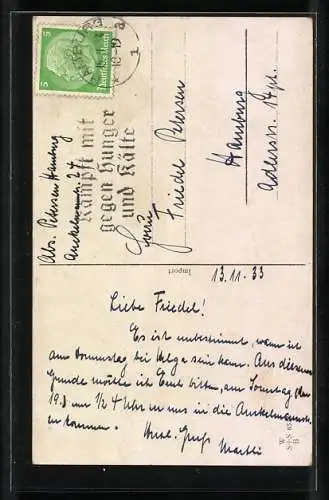 5
5
Deutsches Reich
HAMBURG
Kämpft mit
gegen Hunger
und Kälte
Abs. Petersen Hamburg
Anckelmannstr. 24
Frau
Friedel Petersen
Hamburg
Import
13.11.33
Liebe Friedel!
Es ist unbestimmt, wann ich
am Donnerstag bei Helga sein kann. Aus diesem
Grunde möchte ich Euch bitten, am Sonntag, den
19. um 1/2 4 Uhr zu uns in die Anckelmannstr.
zu kommen.
Gruß
W.
S+S
B